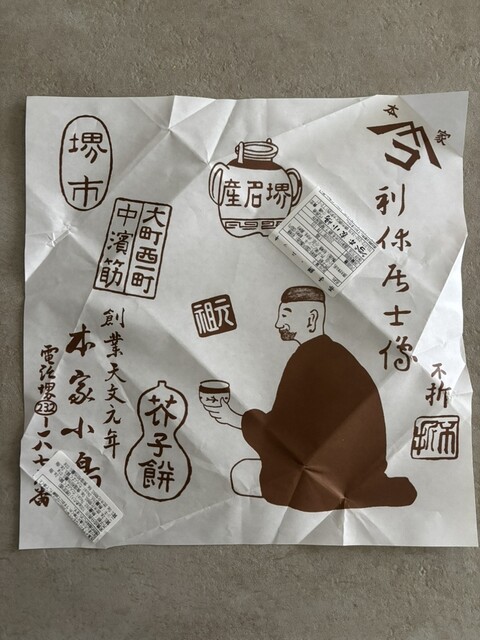 本家
利休居士像
不折
不折
堺名産
元祖
堺市
大町西一町
中濱筋
芥子餅
創業天文元年
本家小島
電話堺232一八七
番